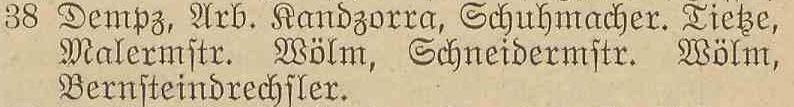 38 Dempz, Arb. Kandzorra, Schuhmacher. Tietze,
Malermstr. Wölm, Schneidermstr. Wölm,
Bernsteindrechsler.